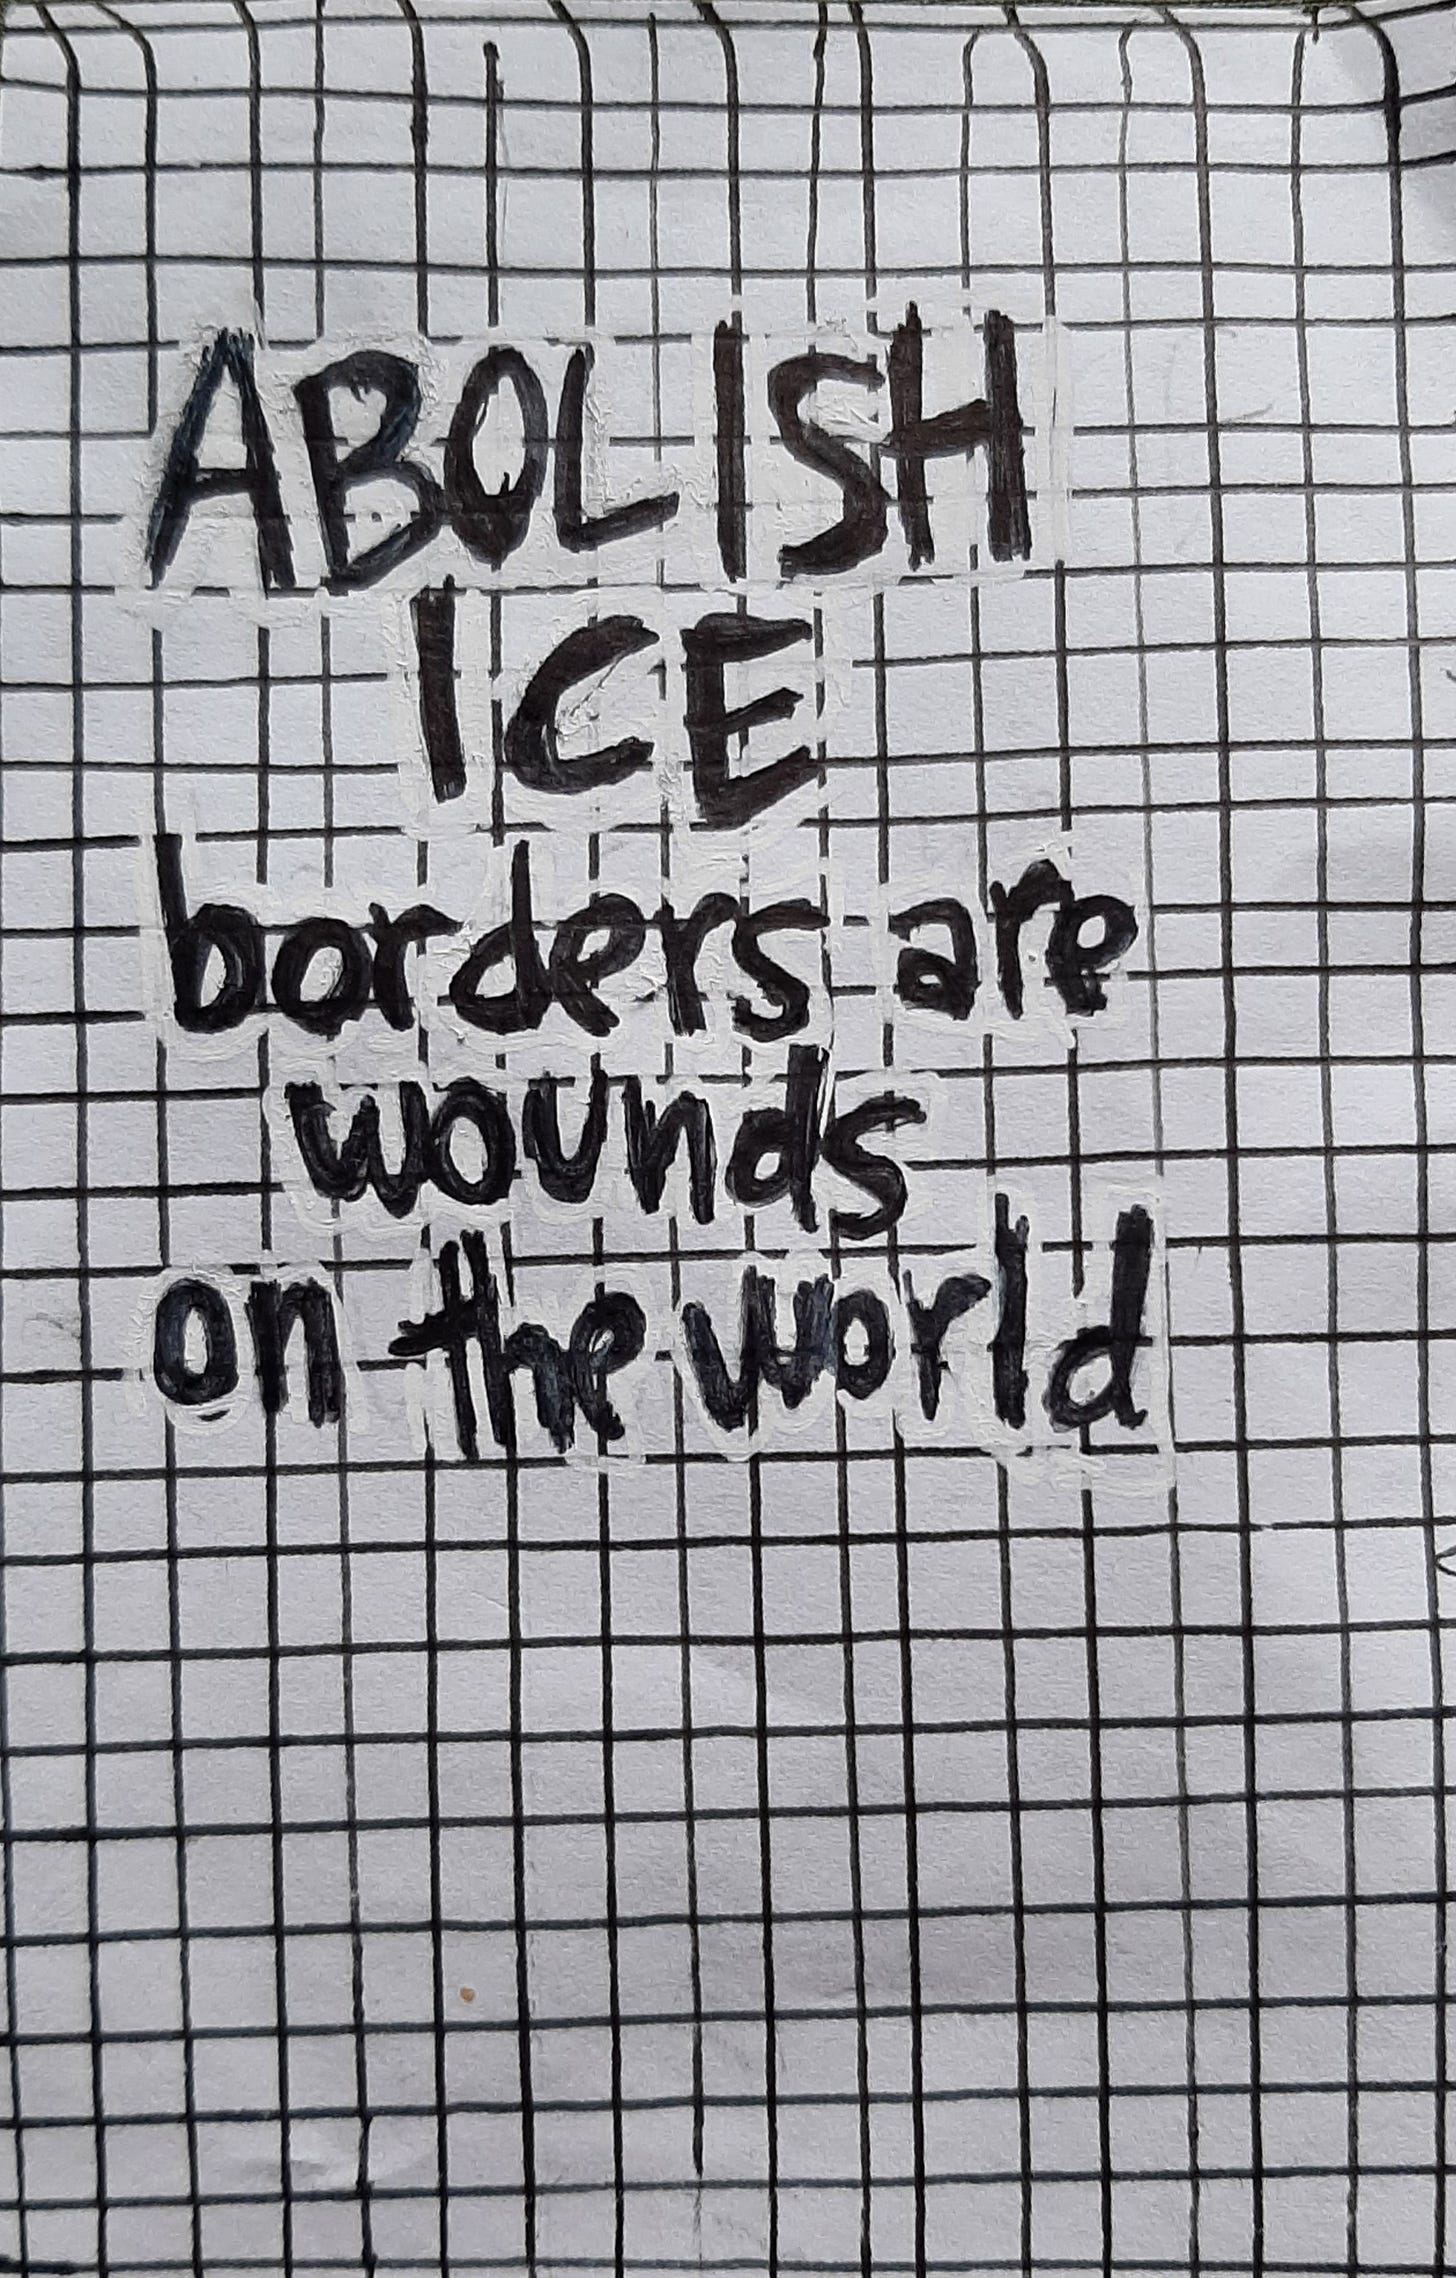 ABOLISH
ICE
borders are
wounds
on the world